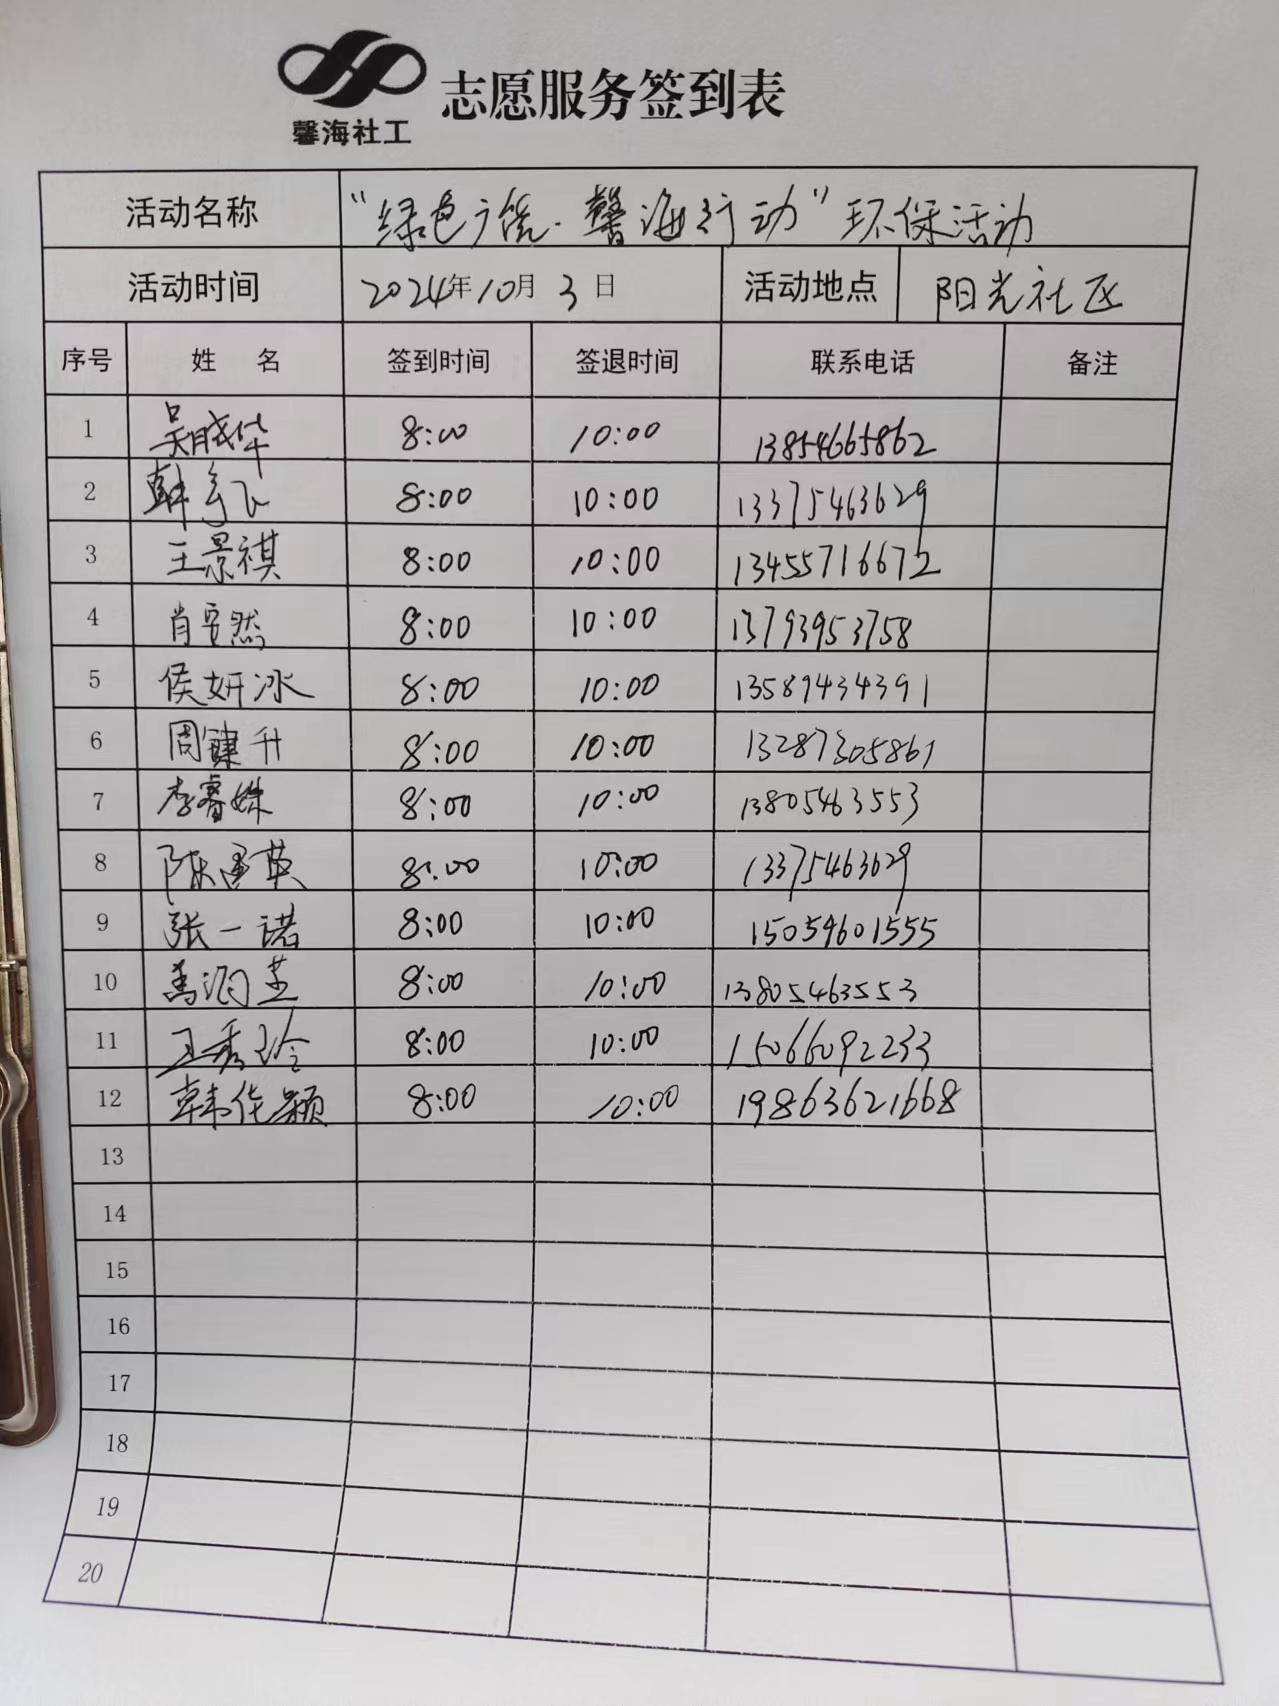 馨海社工
志愿服务签到表
活动名称 “绿色广饶·馨海行动”环保活动
活动时间 2024年10月3日 活动地点 阳光社区
序号 姓 名 签到时间 签退时间 联系电话 备注
1 吴晓华 8:00 10:00 13854665862
2 韩 8:00 10:00 13375463629
3 王景祺 8:00 10:00 13455716672
4 肖昱然 8:00 10:00 13793953758
5 侯妍冰 8:00 10:00 13589434391
6 周镓升 8:00 10:00 13287305861
7 李睿姝 8:00 10:00 13805463553
8 陈英 8:00 10:00 13375463629
9 张一诺 8:00 10:00 15054601555
10 马润芝 8:00 10:00 13805463553
11 王秀玲 8:00 10:00 15066092233
12 韩佳颖 8:00 10:00 19863621668
13
14
15
16
17
18
19
20